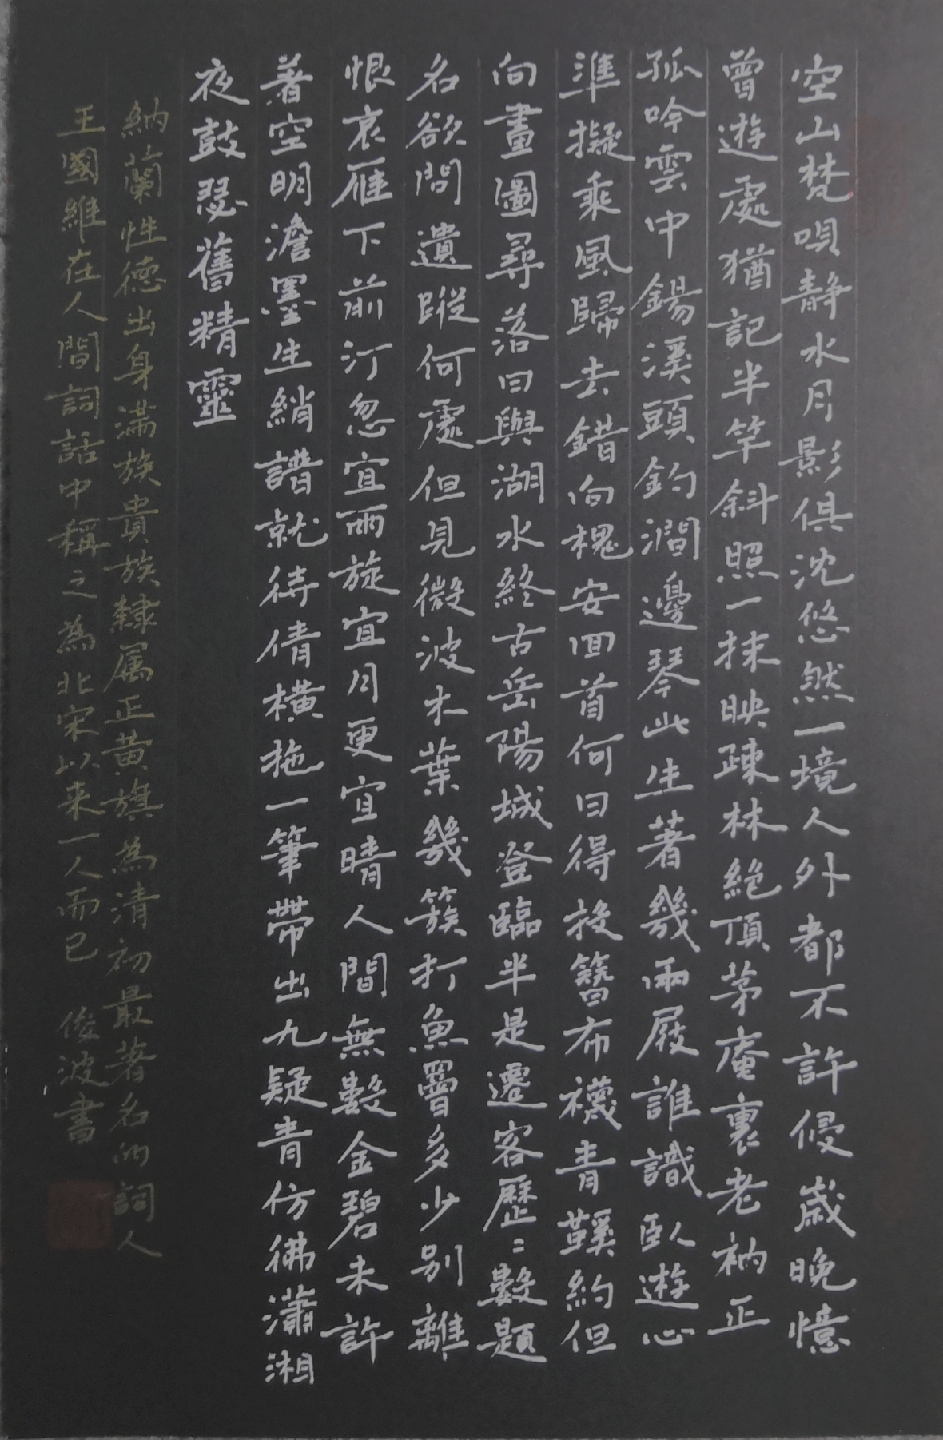 空山梵唄靜水月影俱沈悠然一境人外都不許侵歲晚憶
曾遊處猶記半竿斜照一抹映疎林絕頂茅庵裏老衲正
孤吟雲中錫溪頭釣澗邊琴此生著幾兩屐誰識臥遊心
準擬乘風歸去錯向槐安回首何日得投簪布襪青鞵約但
向畫圖尋落日與湖水終古岳陽城登臨半是遷客歷〻數題
名欲問遺蹤何處但見微波木葉幾簇打魚罾多少別離
恨哀雁下前汀忽宜雨旋宜月更宜晴人間無數金碧未許
著空明澹墨生綃譜就待倩橫拖一筆帶出九疑青仿彿瀟湘
夜鼓瑟舊精靈
納蘭性德出身滿族貴族隸属正黃旗為清初最著名的詞人
王國維在人間詞話中稱之為北宋以來一人而已 俊波書